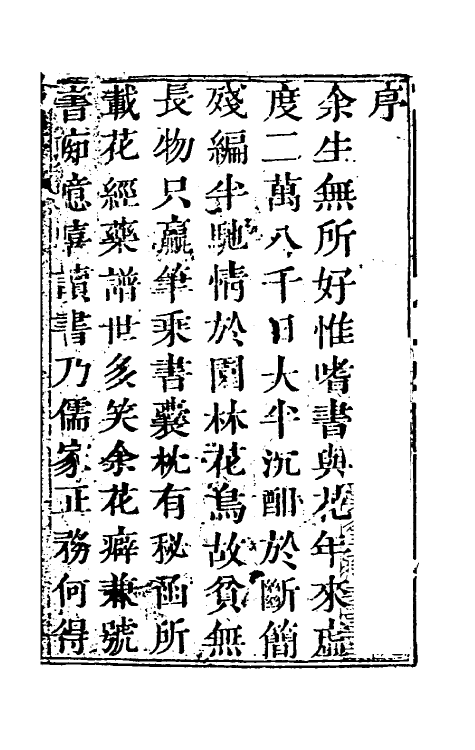 序
余生無所好惟嗜書與花年來虛
度二萬八千日大半沉酣於斷簡
殘編半馳情於園林花鳥故貧無
長物只贏筆乘書囊枕有秘函所
載花經藥譜世多笑余花癖兼號
書痴噫嘻讀書乃儒家正務何得